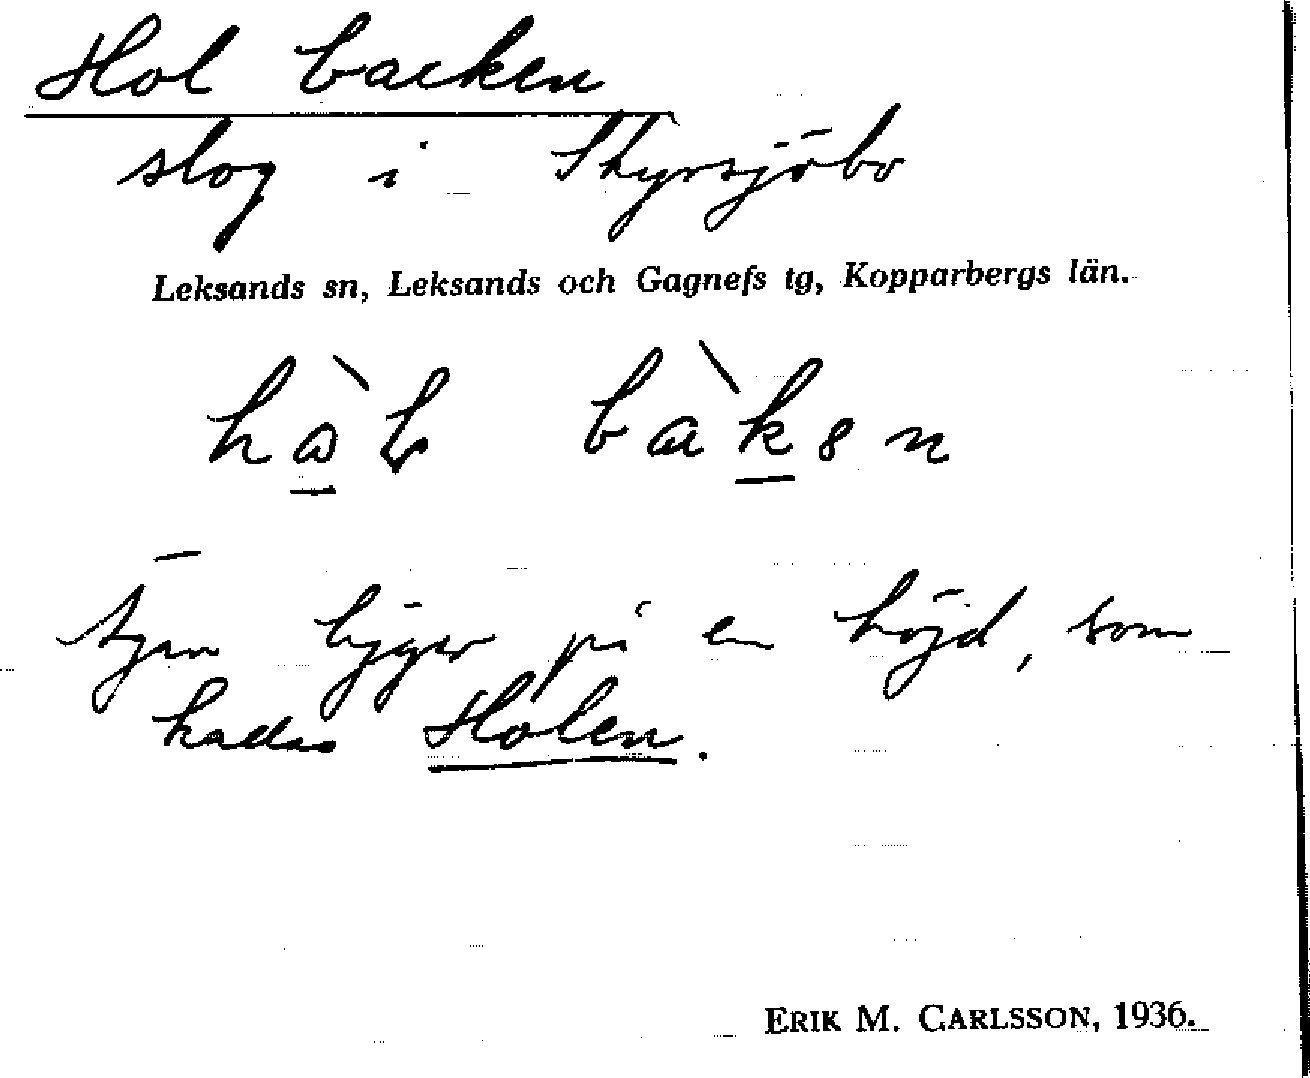 Hol backen
slog i Styrsjöbo
Leksands sn, Leksands och Gagnefs tg, Kopparbergs län.
ligger på en höjd, som
kallas Holen.
ERIK M. CARLSSON, 1936.